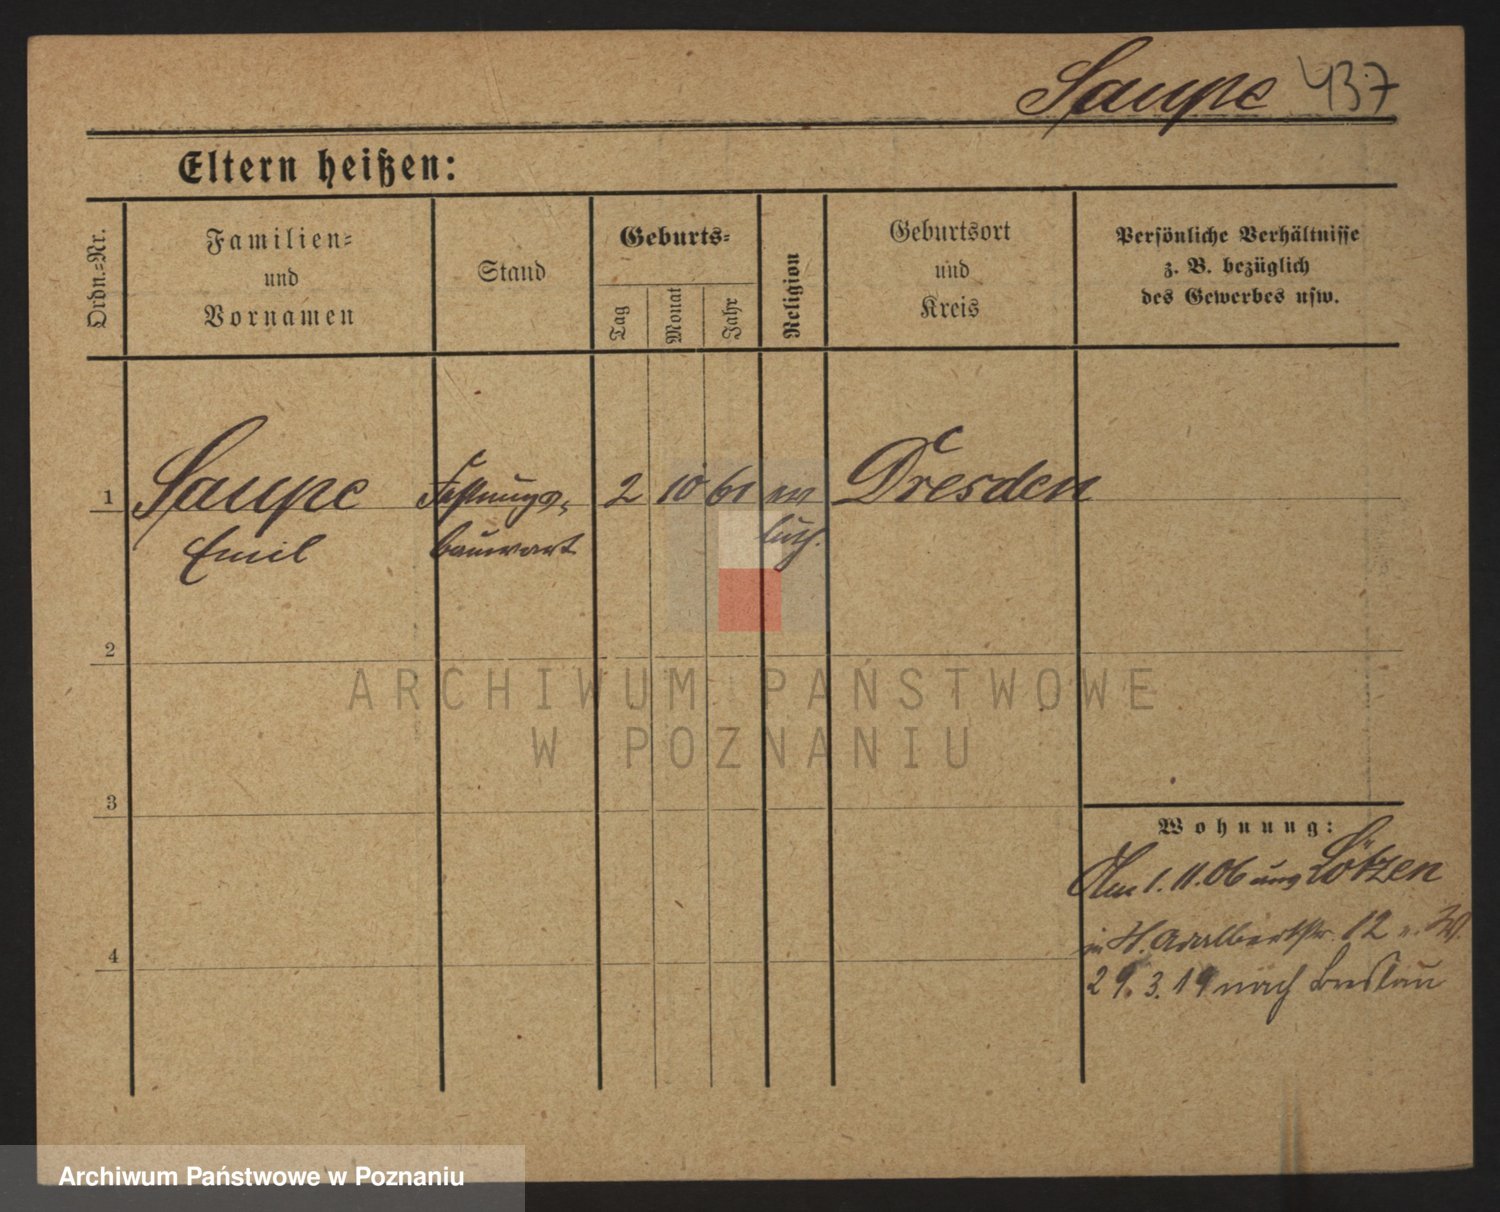 Saupe 437
Eltern heißen:
Ordn.=Nr.
Familien=
und
Vornamen
Stand
Geburts=
Tag
Monat
Jahr
Religion
Geburtsort
und
Kreis
Persönliche Verhältnisse
z. B. bezüglich
des Gewerbes usw.
1 Saupe Festungs= 2 10 61 ev Dresden
Emil bauwart luth.
2
ARCHIWUM PAŃSTWOWE
W POZNANIU
3
Wohnung:
Am 1.11.06 aus Lötzen
in H. Adalbertstr. 12 v. W.
4
29.3.19 nach Breslau
Archiwum Państwowe w Poznaniu